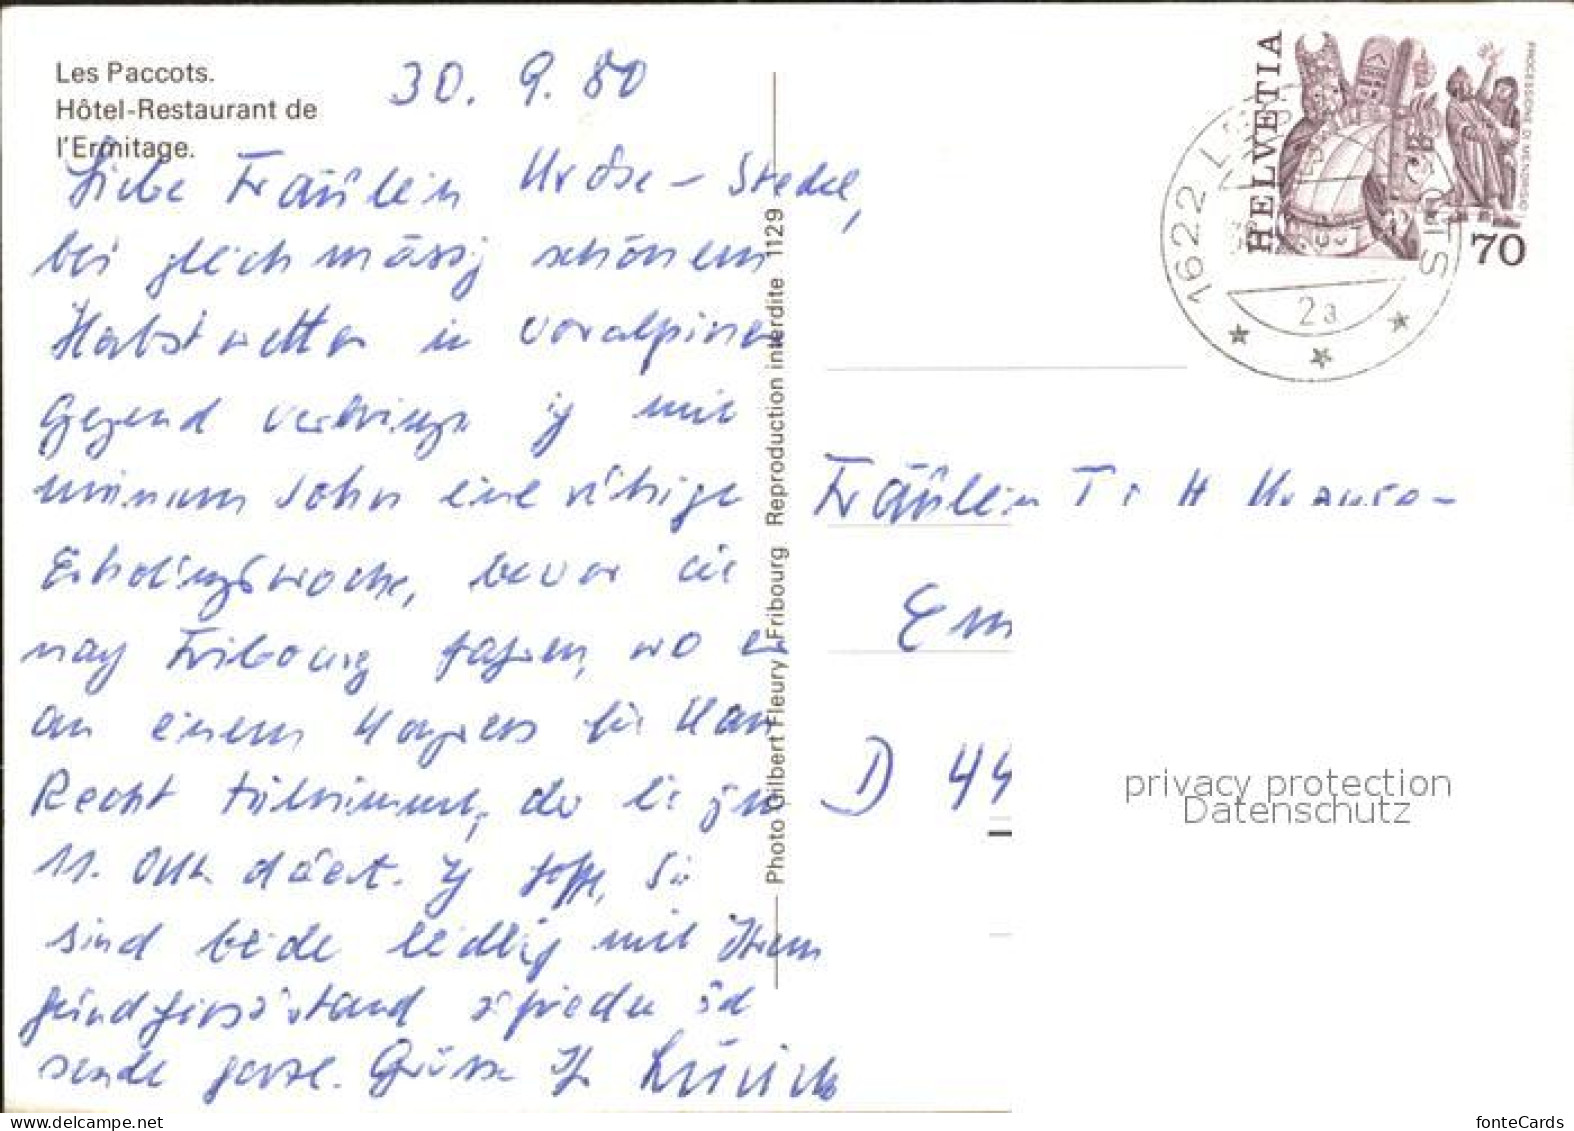 Les Paccots.
Hôtel-Restaurant de
l'Ermitage.
30. 9. 80
Liebe Fräulein
bei gleichmässig schönem
Herbstwetter in voralpiner
Gegend verbringe ich mit
meinem Sohn eine ruhige
Erholungswoche, bevor wir
nach Fribourg fahren, wo er
an einem Kongress für Kan.
Recht teilnimmt, der bis zum
11. Okt. dauert. Ich hoffe, Sie
sind beide leidlich mit Ihrem
Gesundheitszustand zufrieden und
sende herzl. Grüsse Ihr
Photo Gilbert Fleury, Fribourg Reproduction interdite 1129
HELVETIA
PROCESSIONE DI MENDRISIO
70
1622 L
2a
Fräulein
Em
D 44
privacy protection
Datenschutz
fonteCards
delcampe.net